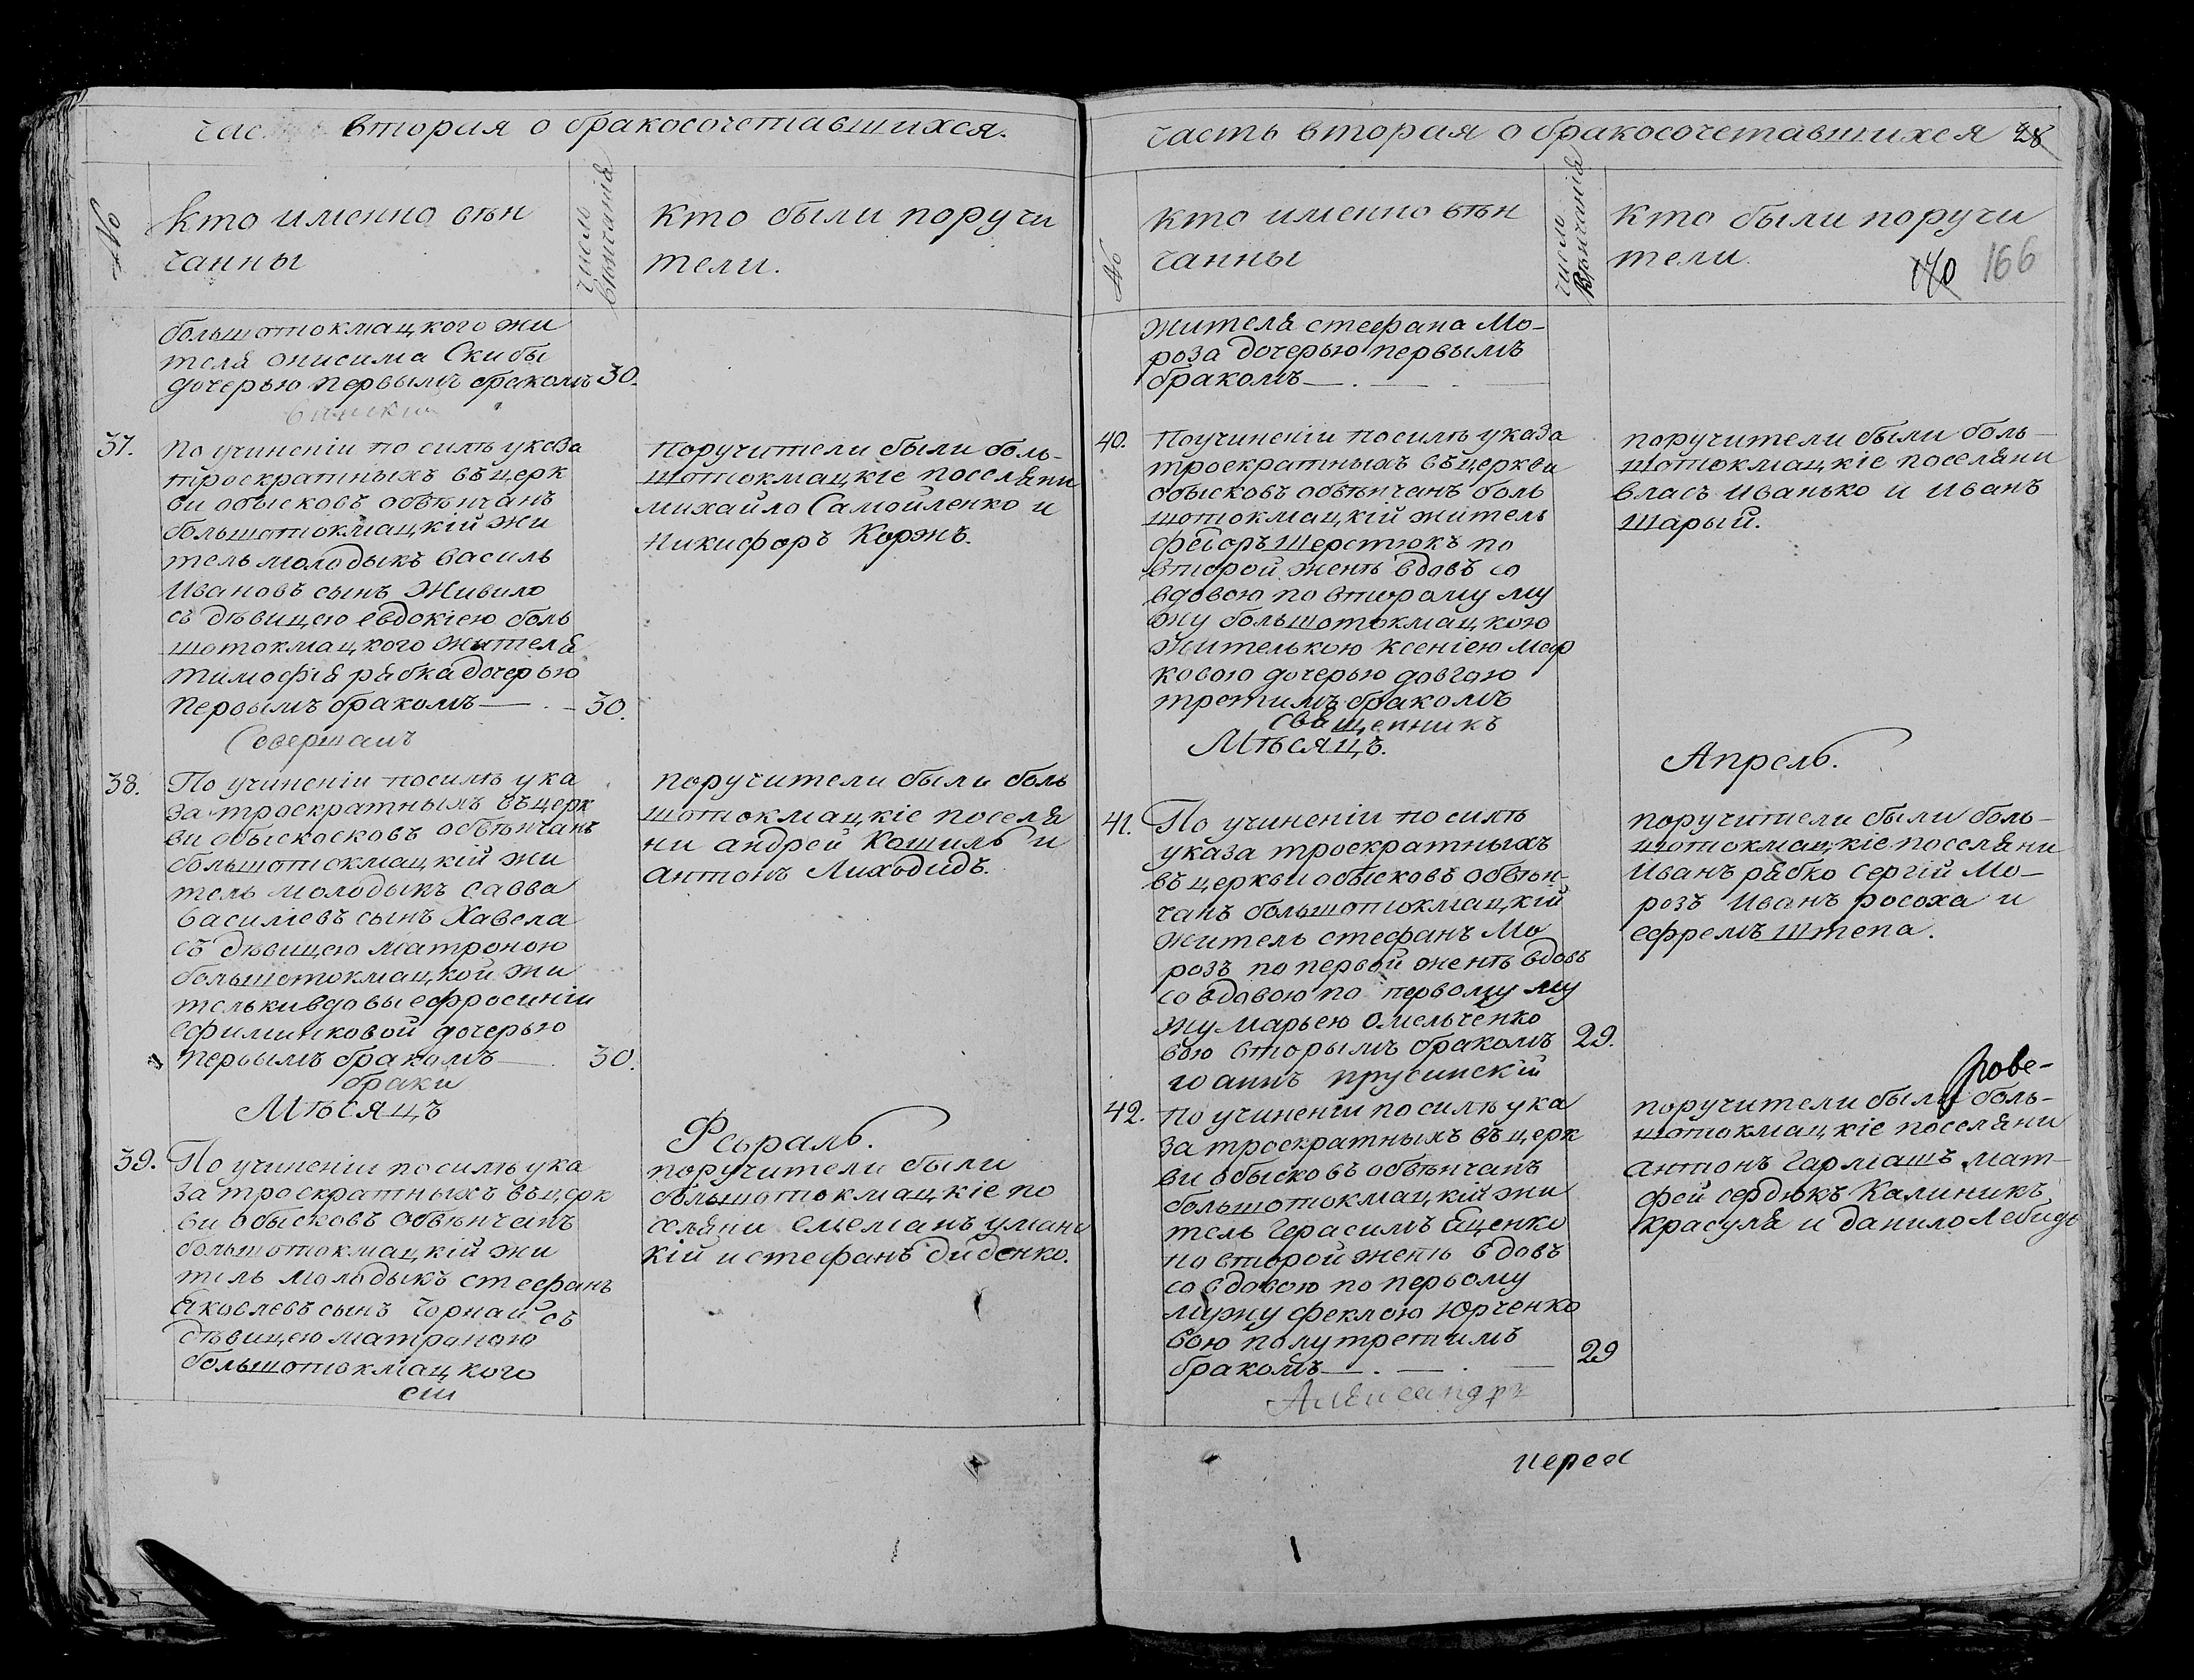 часть вторая о бракосочетавшихся.
№
кто именно вѣн
чанны
Число
Вѣнчанія
кто были поручи
тели.
большотокмацкого жи
теля онисима Скибы
дочерью первымъ бракомъ 30.
37. По учиненіи по силѣ указа
троекратныхъ въ церк
ви обысковъ обвѣнчанъ
большотокмацкій жи
тель молодыкъ василь
Ивановъ сынъ Живило
съ дѣвицею евдокіею боль
шотокмацкого жителя
тимофія рябка дочерью
первымъ бракомъ 30.
поручители были боль-
шотокмацкіе поселяни
михайло Самойленко и
Никифоръ Коржъ.
Совершалъ
38. По учиненіи посилѣ ука
за троекратныхъ въ церк
ви обыскосковъ обвѣнчанъ
большотокмацкій жи
тель молодыкъ савва
василіевъ сынъ Хавела
съ дѣвицею матроною
большотокмацкой жи
тельки вдовы ефросиніи
ефименковой дочерью
первымъ бракомъ 30.
поручители были боль
шотокмацкіе поселя
ни андрей Кошиль и
антонъ Лиходидъ.
браки
Мѣсяцъ
Февраль.
39. По учиненіи посилѣ ука
за троекратныхъ въ церк
ви обысковъ обвѣнчанъ
большотокмацкій жи
тель молодыкъ стефанъ
Яковлевъ сынъ Чорнай съ
дѣвицею матроною
большотокмацкого
поручители были
большотокмацкіе по
селяни емелианъ уманс
кій и стефанъ диденко.
часть вторая о бракосочетавшихся 28
№
кто именно вѣн
чанны
число
Вѣнчанія
кто были поручи
тели.
170 166
жителя стефана Мо-
роза дочерью первымъ
бракомъ
40. По учиненіи посилѣ указа
троекратныхъ въ церкви
обысковъ обвѣнчанъ боль
шотокмацкій житель
федоръ Шерстюкъ по
второй женѣ вдовъ со
вдовою по второму му
жу большотокмацкою
жителькою ксеніею мар
ковою дочерью довгою
третимъ бракомъ
поручители были боль-
шотокмацкіе поселяни
власъ иванько и иванъ
шарый.
священникъ
Мѣсяцъ.
Апрель.
41. По учиненіи по силѣ
указа троекратныхъ
въ церкви обысковъ обвѣн-
чанъ большотокмацкій
житель стефанъ Мо
розъ по первой женѣ вдовъ
со вдовою по первому му
жу марьею омельченко
вою вторымъ бракомъ 29.
поручители были боль-
шотокмацкіе поселяни
Иванъ рябко сергій Мо-
розъ Иванъ росоха и
ефремъ штепа.
іоаннъ прусинскій
рове-
42. По учиненіи по силѣ ука
за троекратныхъ въ церк
ви обысковъ обвѣнчанъ
большотокмацкій жи
тель герасимъ Яценко
по второй женѣ вдовъ
со вдовою по первому
мужу феклою Юрченко
вою полутретимъ
бракомъ 29
поручители были боль-
шотокмацкіе поселяни
антонъ гармашъ мат-
фей сердюкъ Калиникъ
красуля и данило Лебидь
Александръ